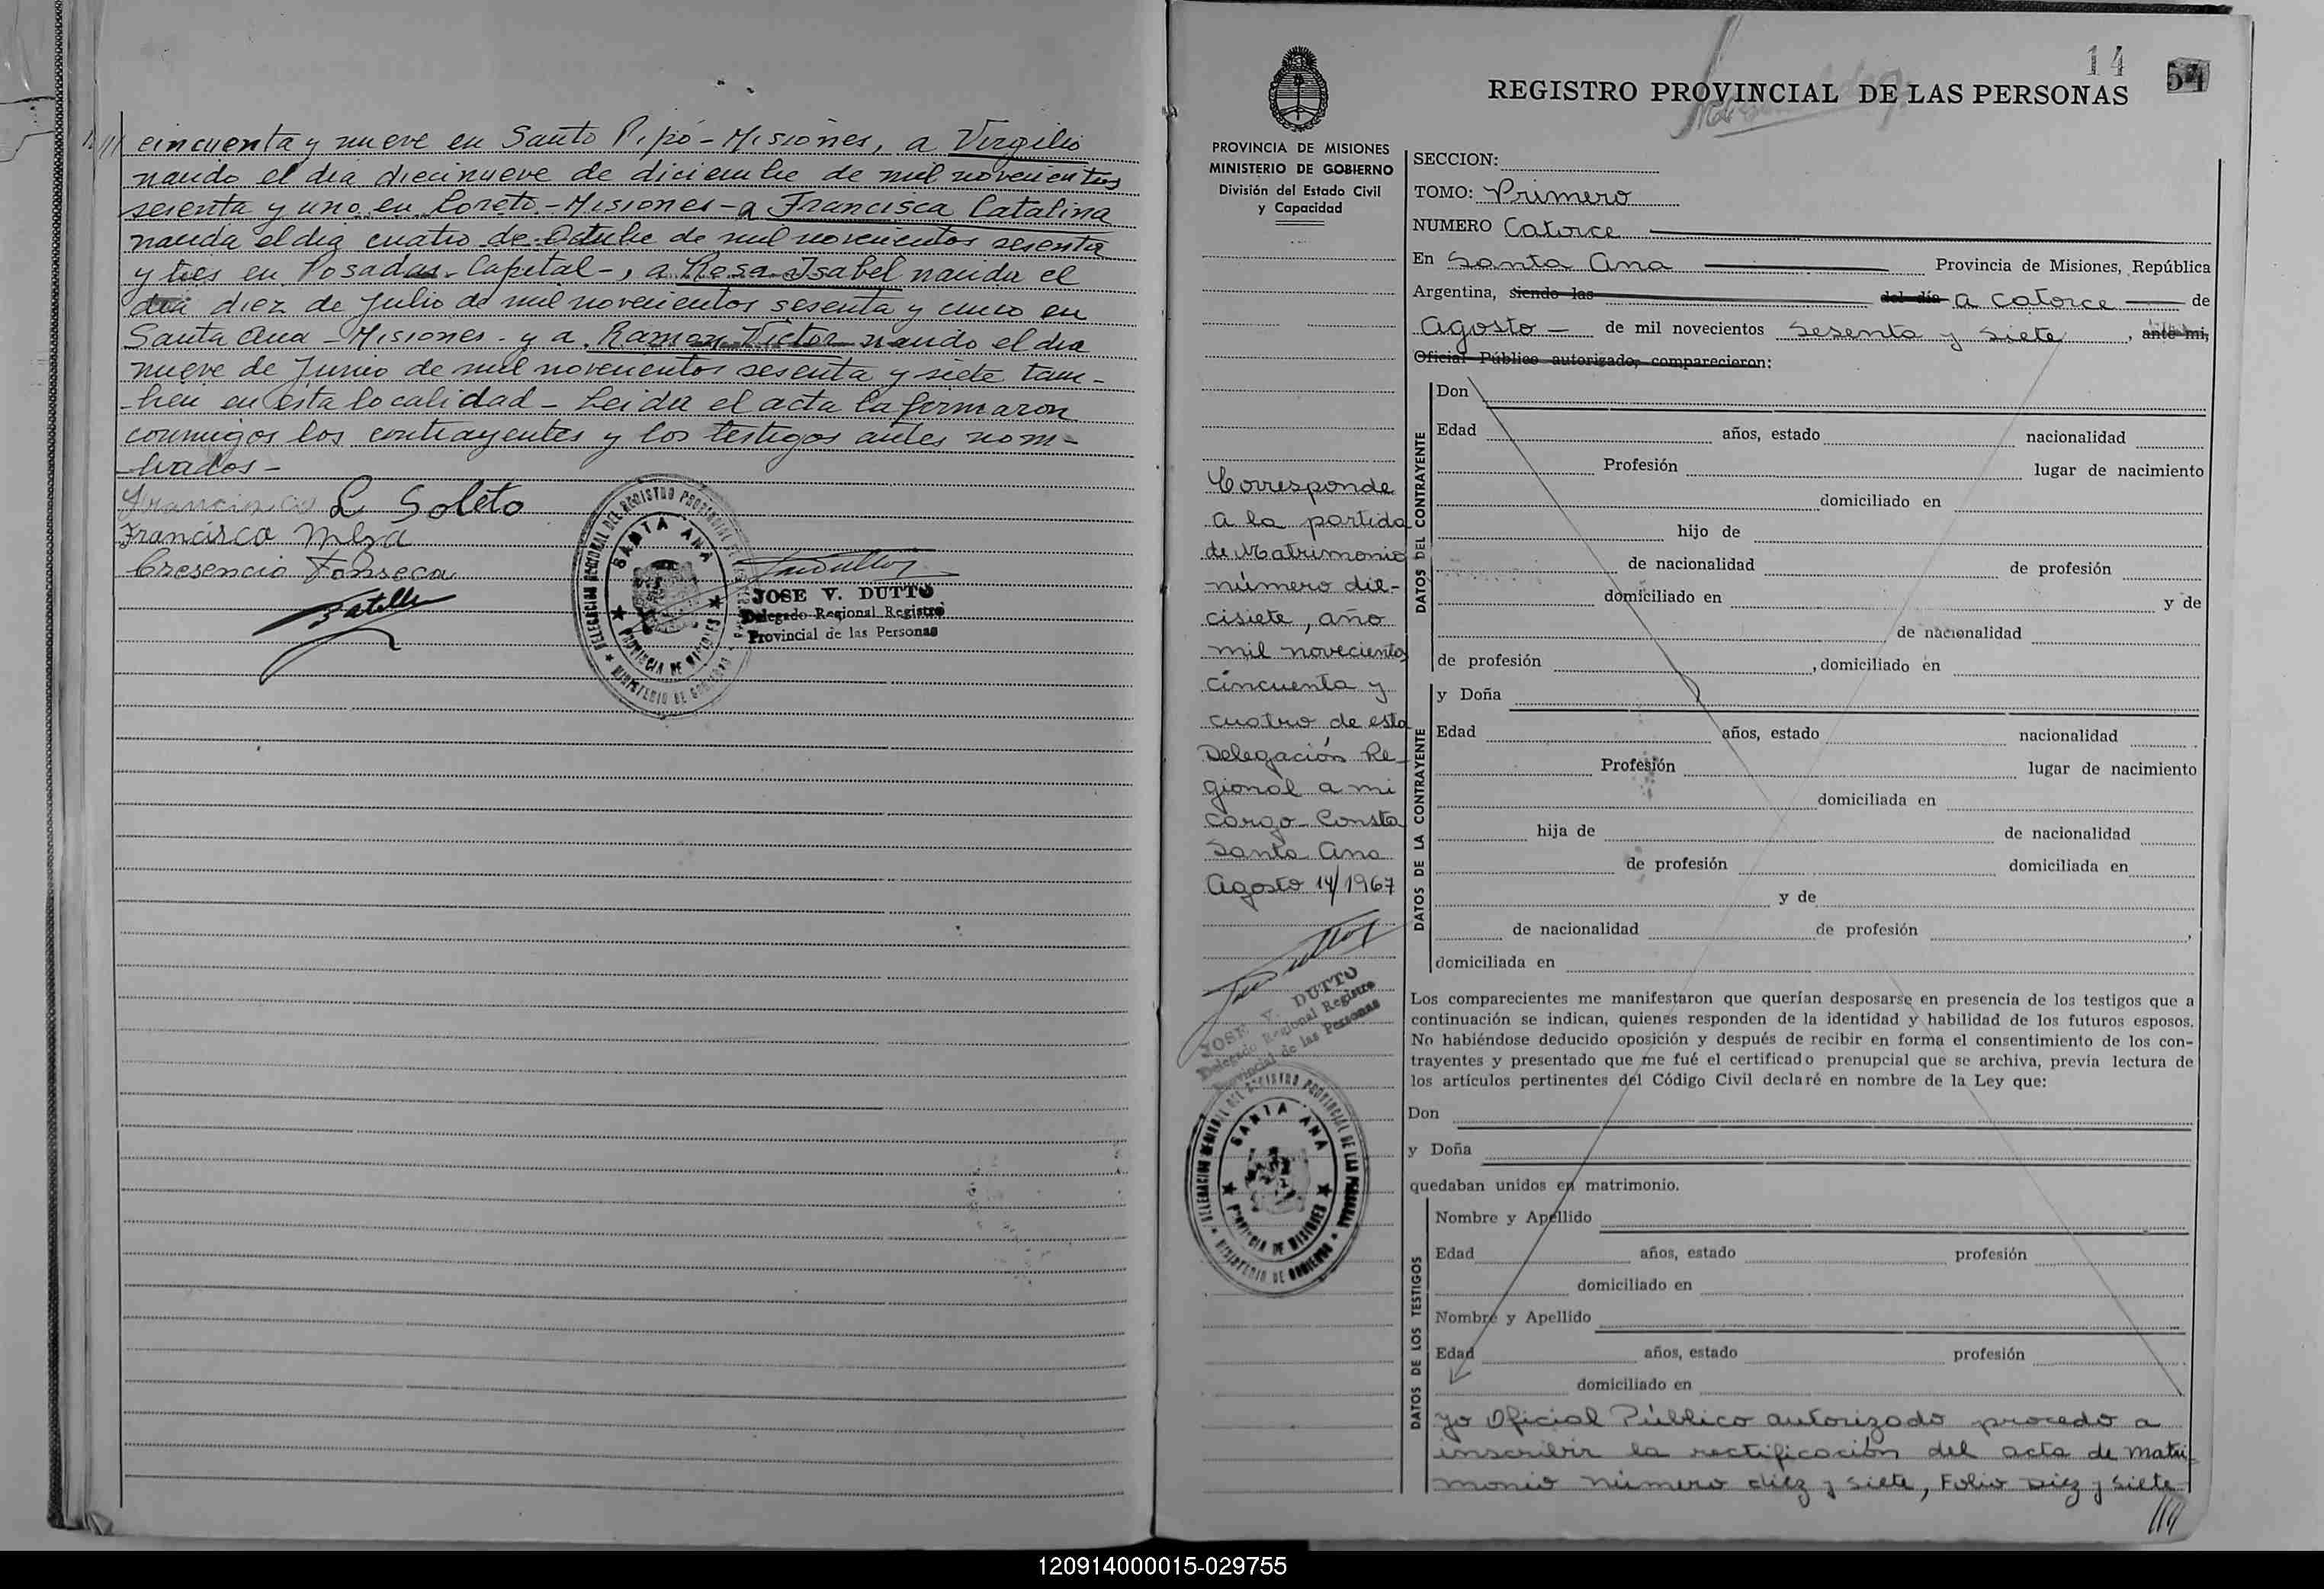 cincuenta y nueve en Santo Pipó - Misiones, a Virgilio
nacido el dia diecinueve de diciembre de mil novecientos
sesenta y uno en Loreto - Misiones - a Francisca Catalina
nacida el dia cuatro de Octubre de mil novecientos sesenta
y tres en Posadas - Capital -, a Rosa Isabel nacida el
dia diez de Julio de mil novecientos sesenta y cinco en
Santa Ana - Misiones - y a Ramon Victor nacido el dia
nueve de Junio de mil novecientos sesenta y siete tam-
bien en esta localidad - Leida el acta la firmaron
conmigos los contrayentes y los testigos antes nom-
brados -
L Soleto
Francisca
Cresencio Fonseca
DELEGACION REGIONAL DEL REGISTRO PROVINCIAL DE LAS PERSONAS
SANTA ANA
PROVINCIA DE MISIONES
MINISTERIO DE GOBIERNO
JOSE V. DUTTO
Delegado Regional Registro
Provincial de las Personas
14
54
REGISTRO PROVINCIAL DE LAS PERSONAS
PROVINCIA DE MISIONES
MINISTERIO DE GOBIERNO
División del Estado Civil
y Capacidad
Corresponde
a la partida
de Matrimonio
número die-
cisiete, año
mil novecientos
cincuenta y
cuatro de esta
Delegación Re-
gional a mi
cargo - Consta
Santa Ana
Agosto 14/1967
JOSE V. DUTTO
Delegado Regional Registro
Provincial de las Personas
DELEGACION REGIONAL DEL REGISTRO PROVINCIAL DE LAS PERSONAS
SANTA ANA
PROVINCIA DE MISIONES
MINISTERIO DE GOBIERNO
SECCION:
TOMO: Primero
NUMERO Catorce
En Santa Ana Provincia de Misiones, República
Argentina, siendo las del día a catorce de
Agosto de mil novecientos sesenta y siete, ante mi,
Oficial Público autorizado, comparecieron:
DATOS DEL CONTRAYENTE
Don
Edad años, estado nacionalidad
Profesión lugar de nacimiento
domiciliado en
hijo de
de nacionalidad de profesión
domiciliado en y de
de nacionalidad
de profesión , domiciliado en
DATOS DE LA CONTRAYENTE
y Doña
Edad años, estado nacionalidad
Profesión lugar de nacimiento
domiciliada en
hija de de nacionalidad
de profesión domiciliada en
y de
de nacionalidad de profesión ,
domiciliada en
Los comparecientes me manifestaron que querían desposarse en presencia de los testigos que a
continuación se indican, quienes responden de la identidad y habilidad de los futuros esposos.
No habiéndose deducido oposición y después de recibir en forma el consentimiento de los con-
trayentes y presentado que me fué el certificado prenupcial que se archiva, previa lectura de
los artículos pertinentes del Código Civil declaré en nombre de la Ley que:
Don
y Doña
quedaban unidos en matrimonio.
DATOS DE LOS TESTIGOS
Nombre y Apellido
Edad años, estado profesión
domiciliado en
Nombre y Apellido
Edad años, estado profesión
domiciliado en
yo Oficial Público autorizado procedo a
inscribir la rectificación del acta de matri-
monio número diez y siete, Folio Diez y siete
120914000015-029755